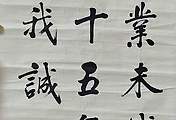 業未
十五年
我誠